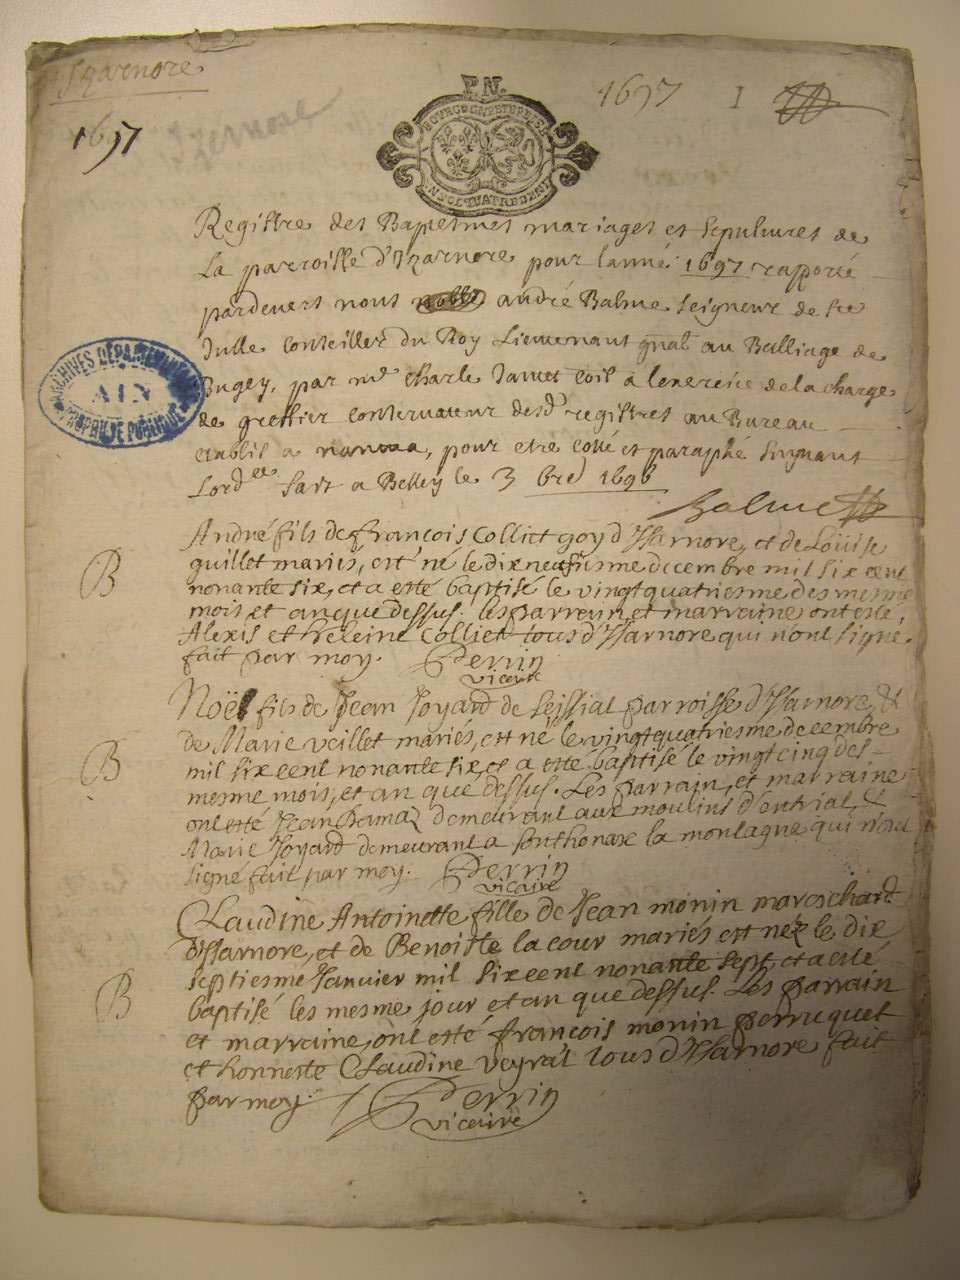 Izarnore
1697
Izernore
P. N.
BOURGOGNE ET BRESSE
UN SOL QUATRE DEN
1697 I
ARCHIVES DÉPARTEMENTALES
AIN
PROPRIÉTÉ PUBLIQUE
Registre des Baptesmes mariages et sepultures de
La parroisse d'Izarnore pour l'année 1697 rapporté
pardevant nous andré Balme seigneur de ste
Julle conseiller du Roy Lieutenant gnal au Balliage de
Bugey, par me charle Jamet a l'exercice de la charge
de greffier conservateur desd registres au Bureau
establi a nantua, pour etre cotté et paraphé suyvant
Lord ce fait a Belley le 3 bre 1696
Balme
B
André fils de françois Colliet goy d'Isarnore, et de Loüise
guillet mariés, est né le dixneufiesme decembre mil six cent
nonante six, et a esté baptisé le vingtquatriesme des mesme
mois et an que dessus. les parrain, et marraine ont esté
Alexis et heleine Colliet tous d'Isarnore qui n'ont signé.
fait par moy. Perrin
vicaire
B
Noël fils de Jean Joyard de Seissiat parroisse d'Isarnore, &
de Marie veillet mariés, est né le vingtquatriesme decembre
mil six cent nonante six et a esté baptisé le vingtcinq des
mesme mois, et an que dessus. Les parrain, et marraine
ont esté Jean hamaz demeurant aux moulins d'ontriat, &
Marie Joyard demeurant a sonthonax la montagne qui n'ont
signé fait par moy. Perrin
vicaire
B
Claudine Antoinette fille de Jean monin mareschard
d'Isarnore, et de Benoitte la cour mariés est née le dix
septiesme Janvier mil six cent nonante sept, et a esté
baptisé les mesme jour et an que dessus. Les parrain
et marraine, ont esté françois monin perruquet
et honneste Claudine veyrat tous d'Isarnore fait
par moy. Perrin
vicaire